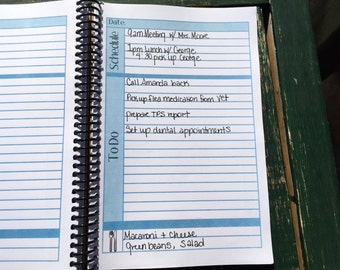 Date:
Schedule
9am Meeting w/ Mrs. Moore
1pm Lunch w/ George
4:30 pick up George
To Do
Call Amanda back
Pick up flea medication from Vet
prepare TPS report
Set up dental appointments
Macaroni + Cheese
Green beans, Salad